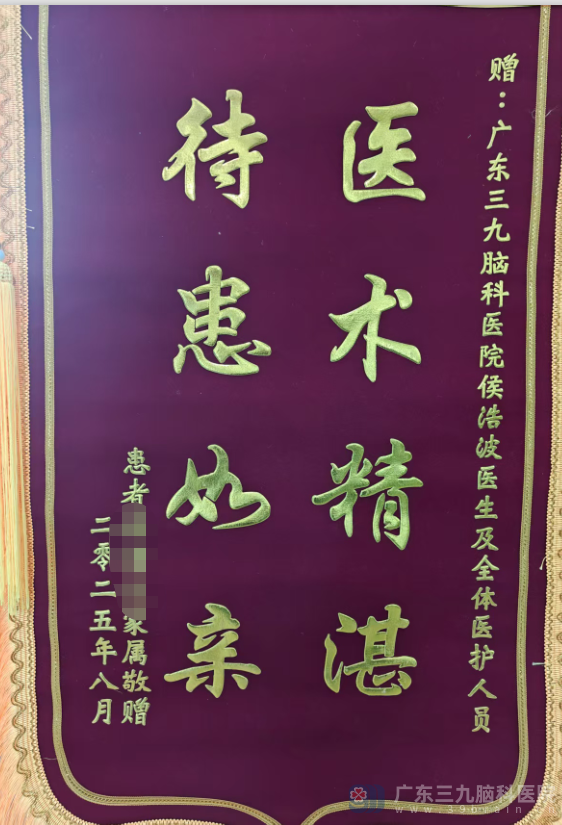 赠：广东三九脑科医院侯浩波医生及全体医护人员
医术精湛
待患如亲
患者家属敬赠
二零二五年八月
广东三九脑科医院